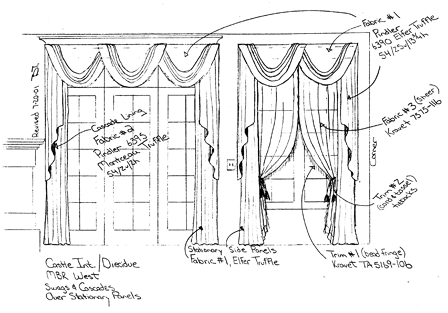 Fabric #1
Pindler
6390 Elfer Truffle
54/25v/13¾h
Revised 7-20-01
Cascade Lining
Fabric #2
Pindler 6395
Montecassi Truffle
54/2v/2h
Fabric #3 (Sheer)
Kravet 7515-116
Corner
Trim #2
(cord & tassel)
tiebacks
Stationary Side Panels
Fabric #1, Elfer Truffle
Trim #1 (bead fringe)
Kravet TA5169-106
Castle Int./Diercdue
MBR West
Swags & Cascades
Over Stationary Panels